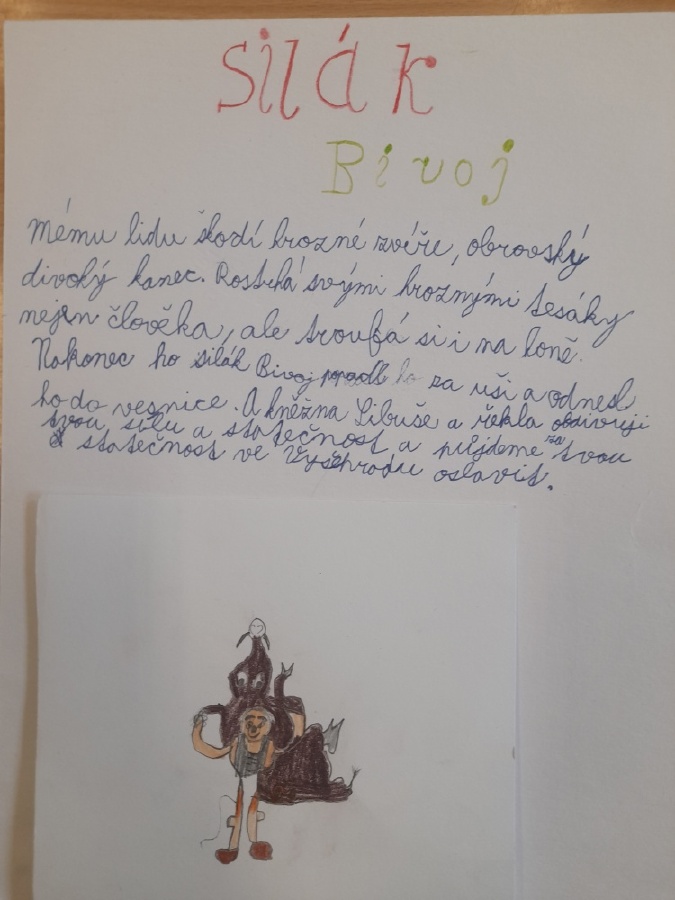 Silák
Bivoj
Mému lidu škodí hrozné zvíře, obrovský
divoký kanec. Rostrhá svými hroznými tesáky
nejen člověka, ale troufá si i na koně.
Nakonec ho silák Bivoj popadl ho za uši a odnesl
ho do vesnice. A kněžna Libuše a řekla obdivuji
tvou sílu a statečnost a půjdeme za tvou
statečnost ve Vyšehradu oslavit.